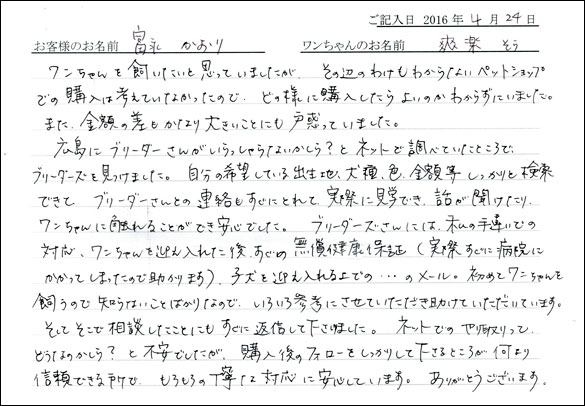 ご記入日 2016年4月24日
お客様のお名前 富永 かおり ワンちゃんのお名前 爽楽 そら
ワンちゃんを飼いたいと思っていましたが、その辺のわけもわからないペットショップ
での購入は考えていなかったので、どの様に購入したらよいのかわからずにいました。
また、金額の差もかなり大きいことにも戸惑っていました。
広島にブリーダーさんがいらっしゃらないかしら?とネットで調べていたところで、
ブリーダーズを見つけました。自分の希望している出生地、犬種、色、金額等しっかりと検索
できて ブリーダーさんとの連絡もすぐにとれて、実際に見学でき、話が聞けたり、
ワンちゃんに触れることができ安心でした。ブリーダーズさんには、私の手違いでの
対応、ワンちゃんを迎え入れた後、あしの無償健康保証(実際すぐに病院に
かかってしまったので助かります)、子犬を迎え入れる上での…のメール。初めてワンちゃんを
飼うので知らないことばかりなので、いろいろ参考にさせていただき助けていただいています。
そしてそこで相談したことにもすぐに返信して下さいました。ネットでのやり取りって、
どうなのかしら?と不安でしたが、購入後のフォローをしっかりして下さるところが何より
信頼できる所で、もろもろの丁寧な対応に安心しています。ありがとうございます。